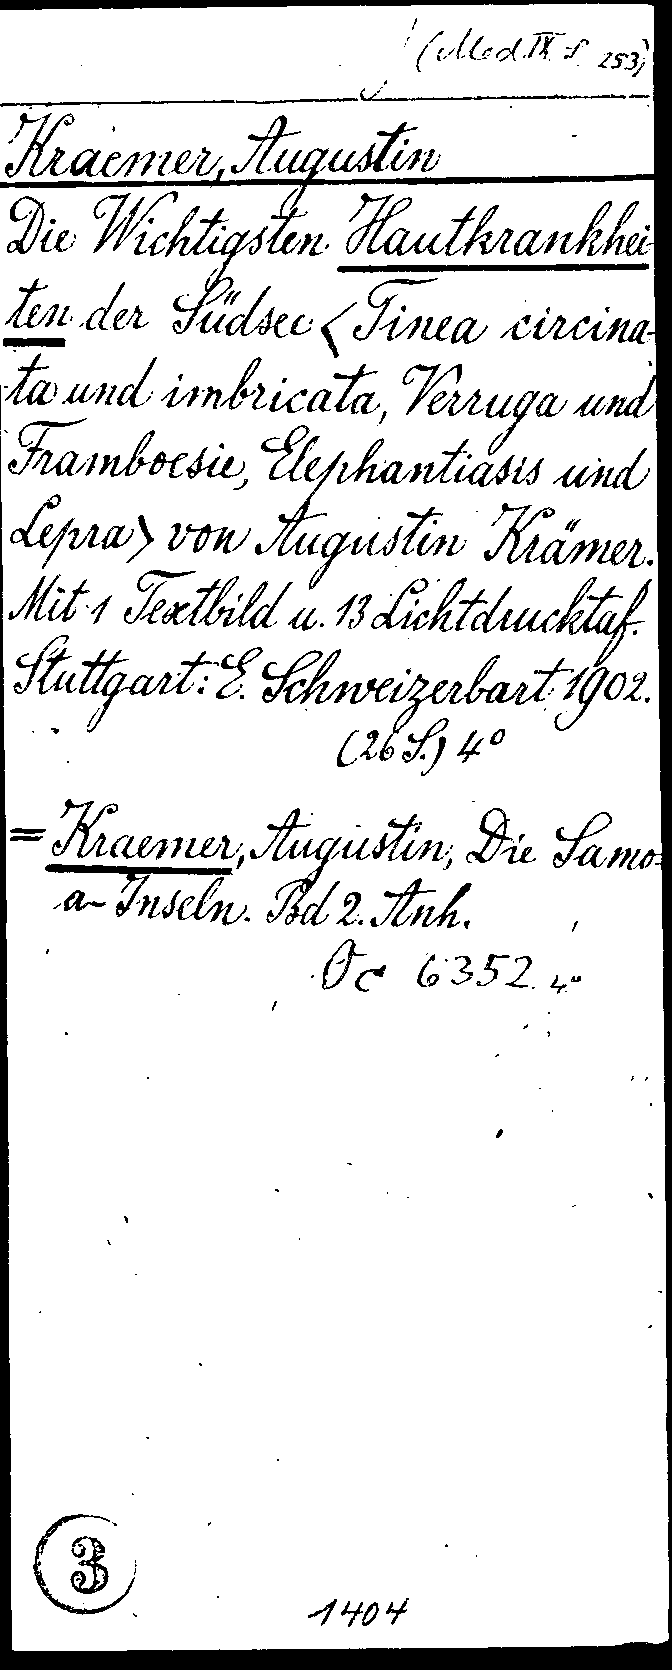 (Med. IX S. 253)
Kraemer, Augustin
Die Wichtigsten Hautkrankhei-
ten der Südsee <Tinea circina-
ta und imbricata, Verruga und
Framboesie, Elephantiasis und
Lepra> von Augustin Krämer.
Mit 1 Textbild u. 13 Lichtdrucktaf.
Stuttgart: E. Schweizerbart 1902.
(26 S.) 4°
= Kraemer, Augustin, Die Samo-
a-Inseln. Bd 2. Anh.
Oc 6352 4°
3
1404